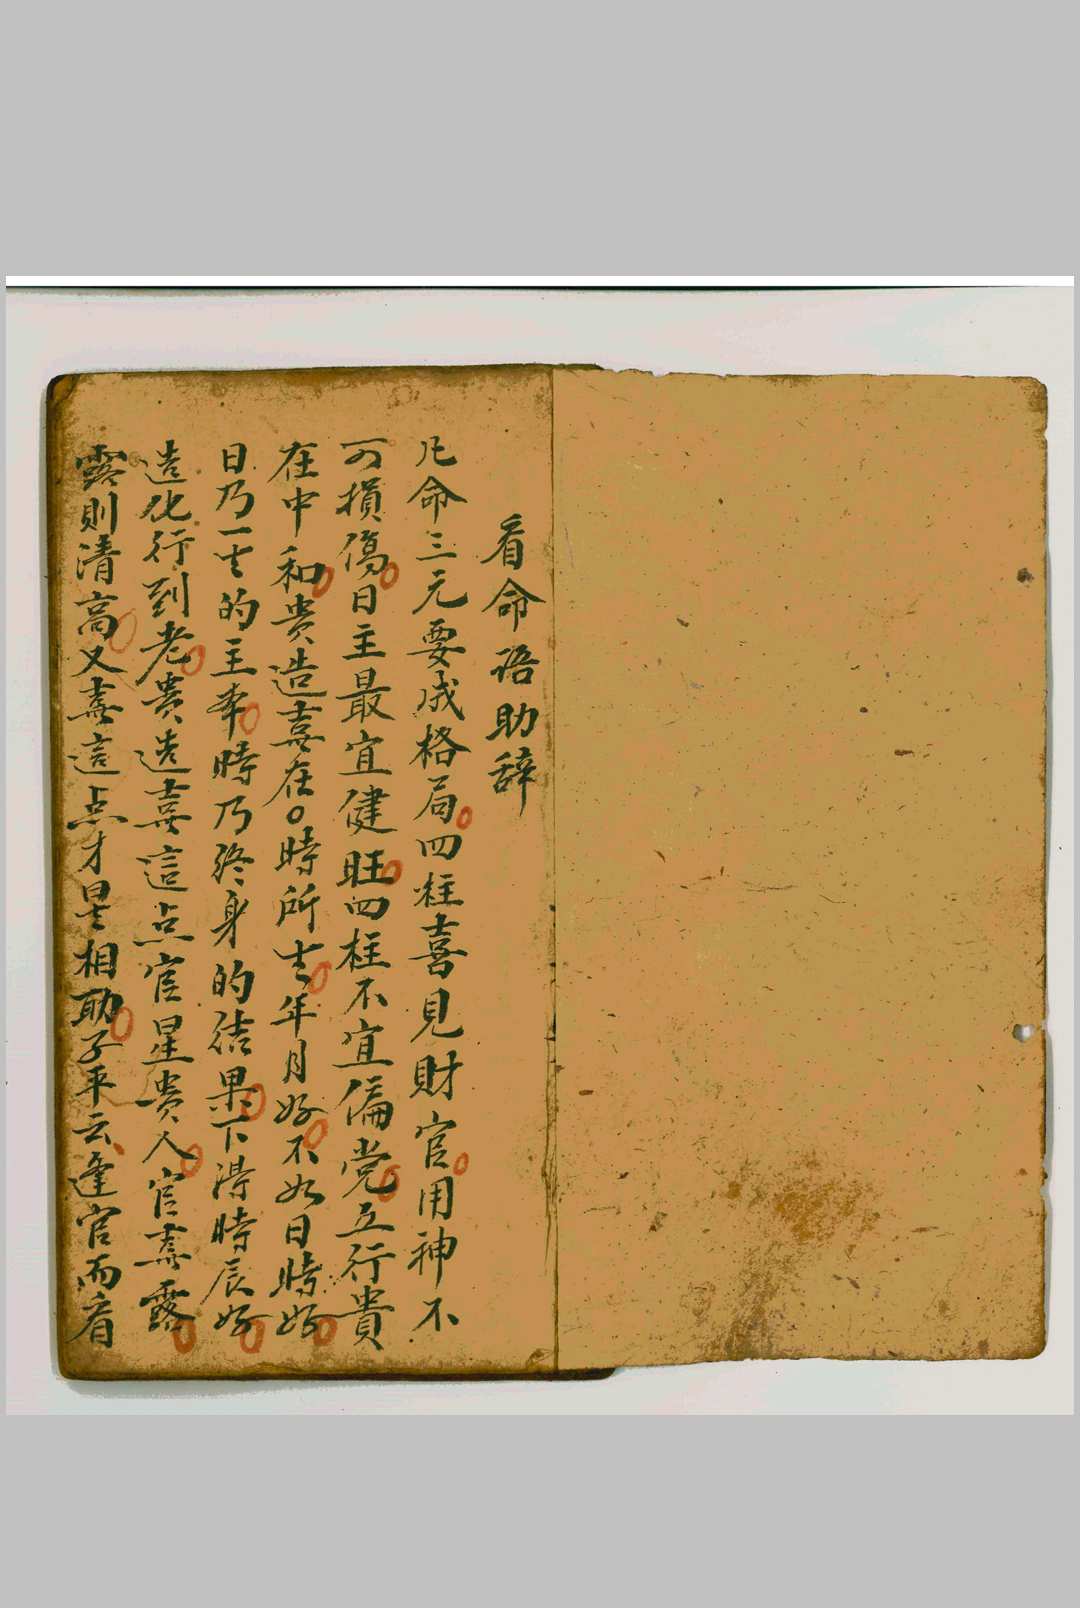 看命语助辞
凡命三元要成格局四柱喜見財官用神不
可損傷日主最宜健旺四柱不宜偏党五行貴
在中和贵造喜在〇時所生年月好不如日時好
日乃一生的主宰時乃终身的结果下得時辰好
造化行到老贵造喜這点官星贵人官喜露
露則清高又喜這点才星相助子平云逢官而看